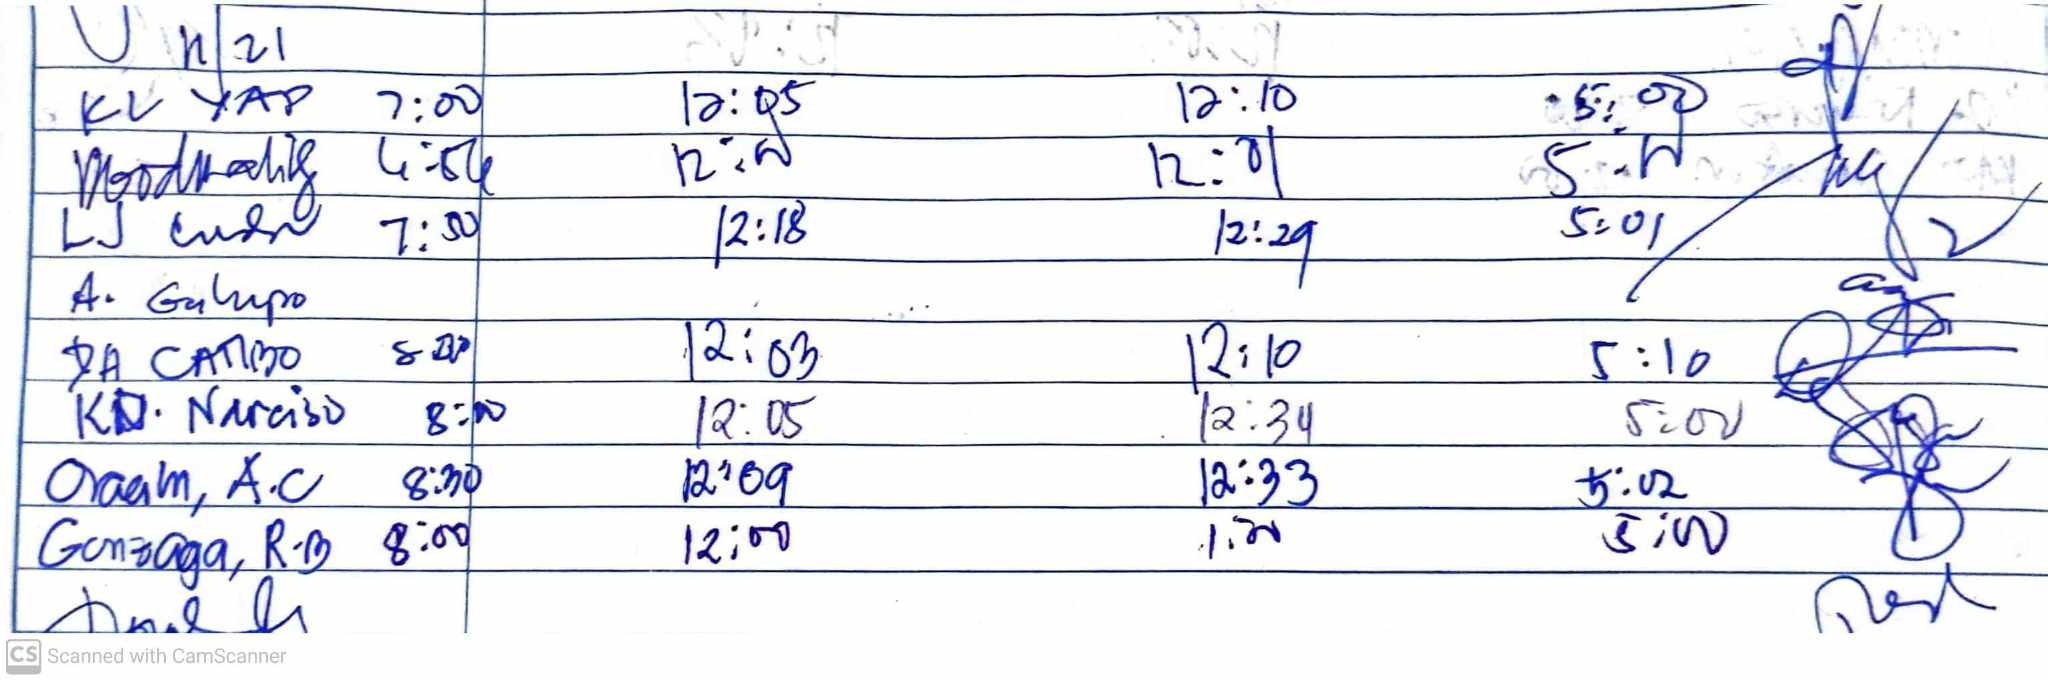 11/21
KL YAP 7:00 12:05 12:10 5:00
6:54 12:00 12:01 5:00
LJ 7:50 12:18 12:29 5:01
A. Galupo
DA CATUBO 8:00 12:03 12:10 5:10
KD. Narciso 8:00 12:05 12:34 5:00
Oraam, A.C 8:30 12:09 12:33 5:02
Gonzaga, R.B 8:00 12:00 1:00 5:00
CS Scanned with CamScanner